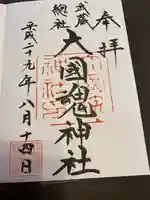 奉拝
武蔵
總社
大國魂神社
平成二十九年八月十四日